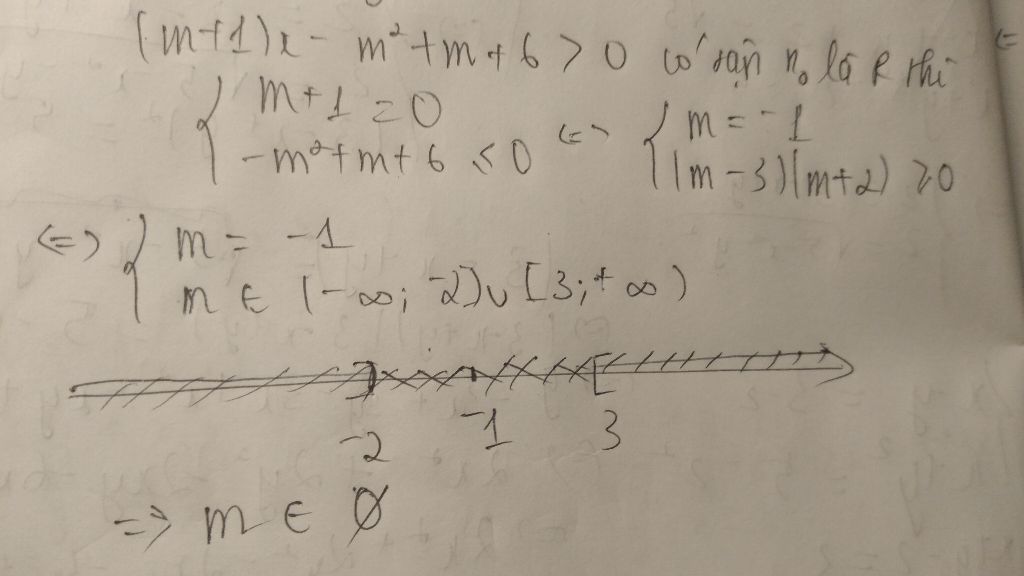 (m+1)x - m²+m+6 > 0 có tập n₀ là R thì
{ m+1 = 0
-m²+m+6 ≤ 0 <=> { m = -1
(m-3)(m+2) ≥ 0
<=> { m = -1
m ∈ (-∞; -2] ∪ [3; +∞)
-2 -1 3
=> m ∈ ∅